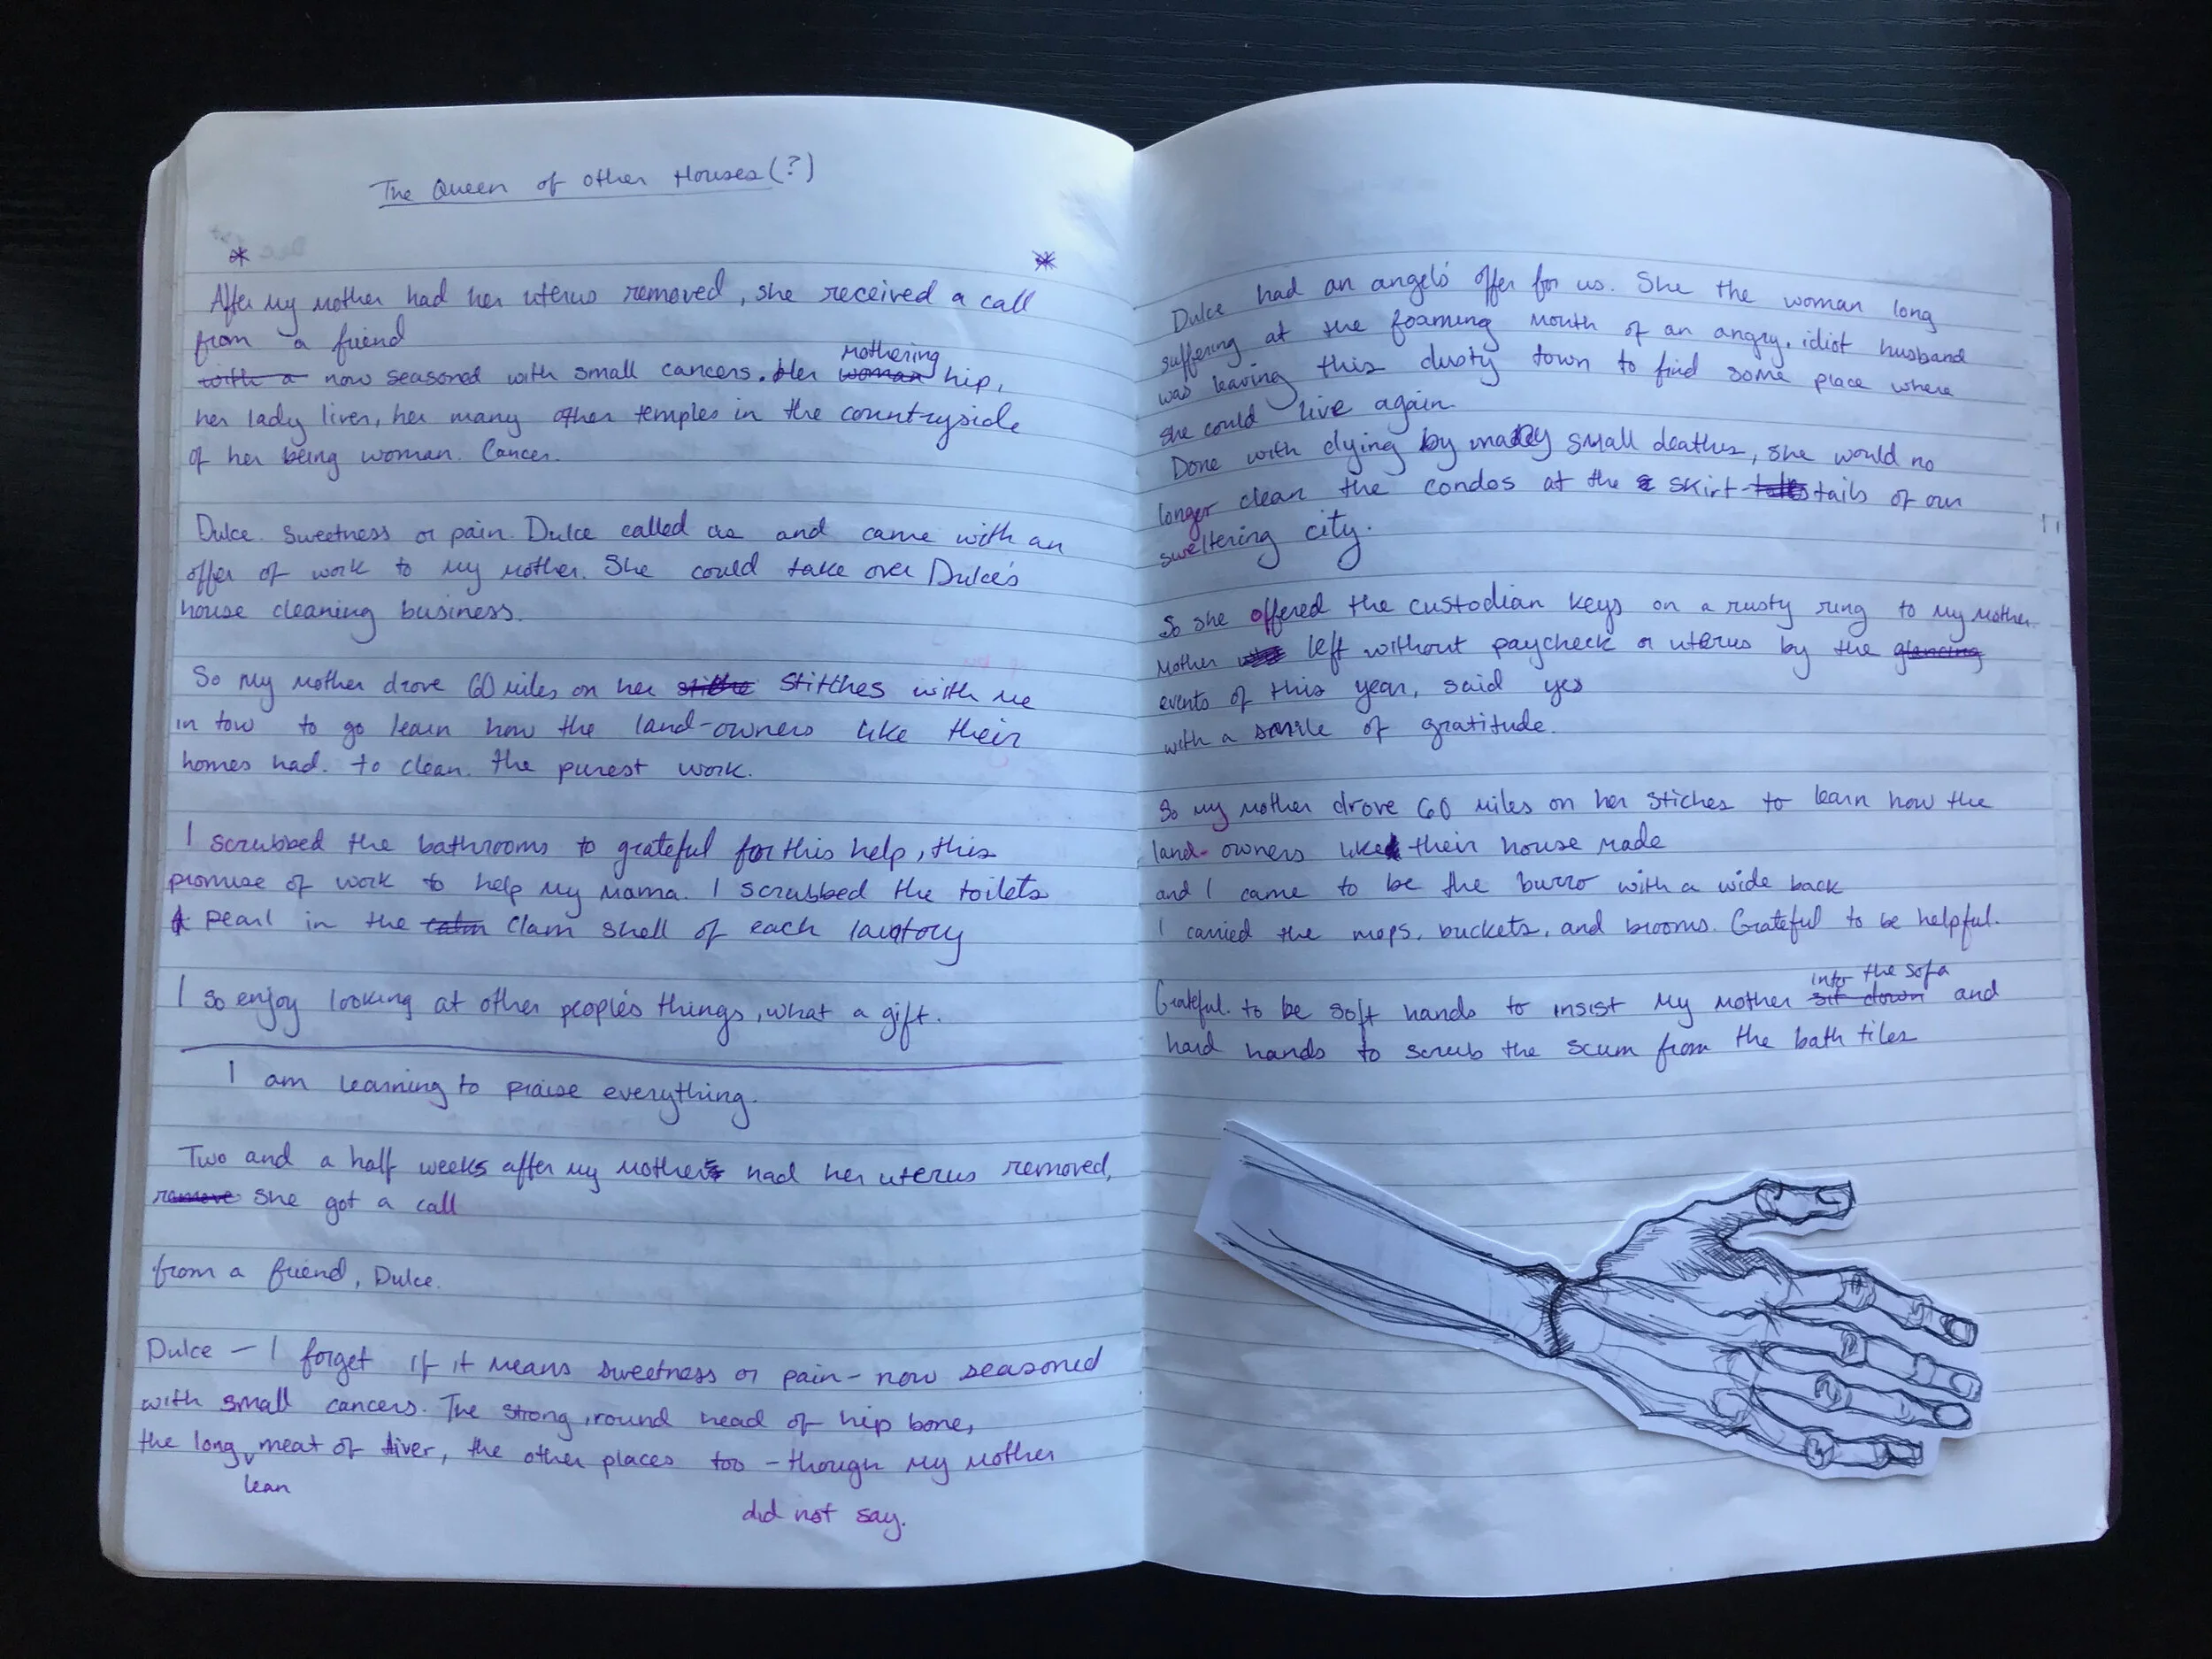 The Queen of Other Houses (?)
* *
After my mother had her uterus removed, she received a call
from a friend
with a now seasoned with small cancers. Her woman mothering hip,
her lady liver, her many other temples in the countryside
of her being woman. Cancer.
Dulce. Sweetness or pain. Dulce called us and came with an
offer of work to my mother. She could take over Dulce's
house cleaning business.
So my mother drove 60 miles on her stitches with me
in tow to go learn how the land-owners like their
homes had. to clean. the purest work.
I scrubbed the bathrooms to grateful for this help, this
promise of work to help my mama. I scrubbed the toilets
A pearl in the calm clam shell of each lavatory
I so enjoy looking at other people's things, what a gift.
I am learning to praise everything.
Two and a half weeks after my mother had her uterus removed,
remove she got a call
from a friend, Dulce.
Dulce – I forget if it means sweetness or pain – now seasoned
with small cancers. The strong, round head of hip bone,
the long, meat of liver, the other places too – though my mother
lean
did not say.
Dulce had an angel's offer for us. She the woman long
suffering at the foaming mouth of an angry, idiot husband
was leaving this dusty town to find some place where
she could live again.
Done with dying by many small deaths, she would no
longer clean the condos at the skirt-tails of our
sweltering city.
So she offered the custodian keys on a rusty ring to my mother.
Mother left without paycheck or uterus by the glancing
events of this year, said yes
with a smile of gratitude.
So my mother drove 60 miles on her stiches to learn how the
land-owners like their house made
and I came to be the burro with a wide back
I carried the mops, buckets, and brooms. Grateful to be helpful.
into the sofa
Grateful. to be soft hands to insist my mother sit down and
hard hands to scrub the scum from the bath tiles